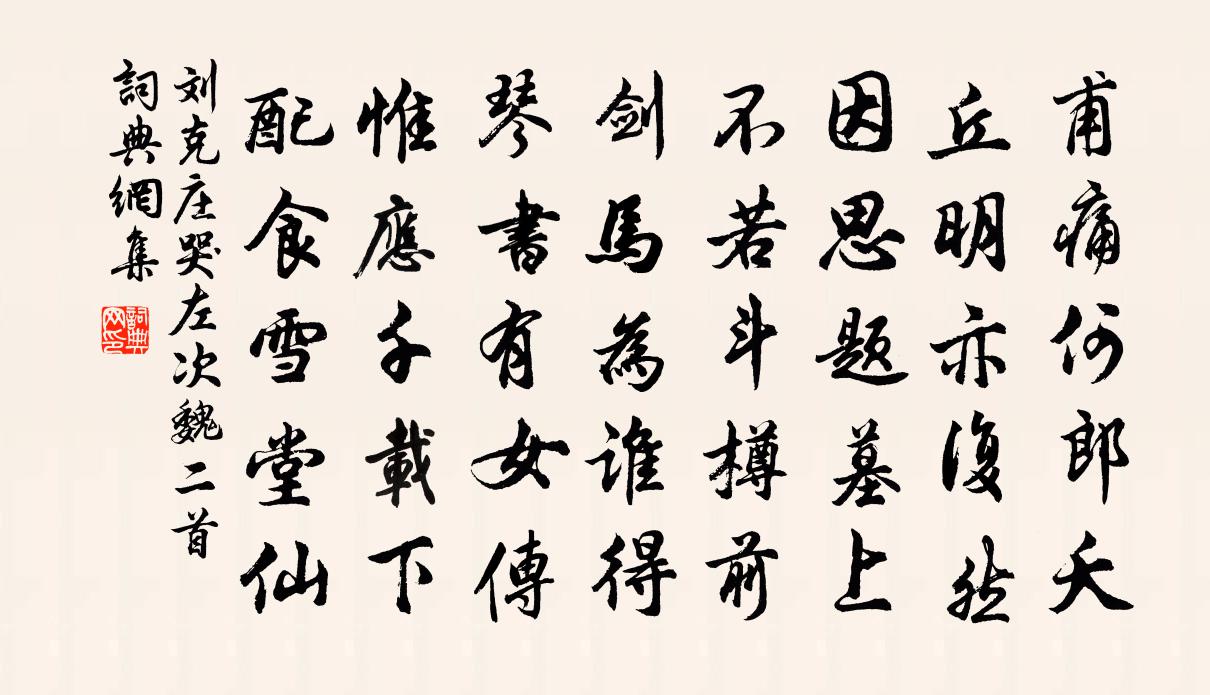 甫痛何郎夭
丘明亦復然
因思题墓上
不若斗樽前
劍馬為誰得
琴書有女傳
惟應千載下
配食雪堂仙
刘克庄哭左次魏二首
詞典網集
詞典网印